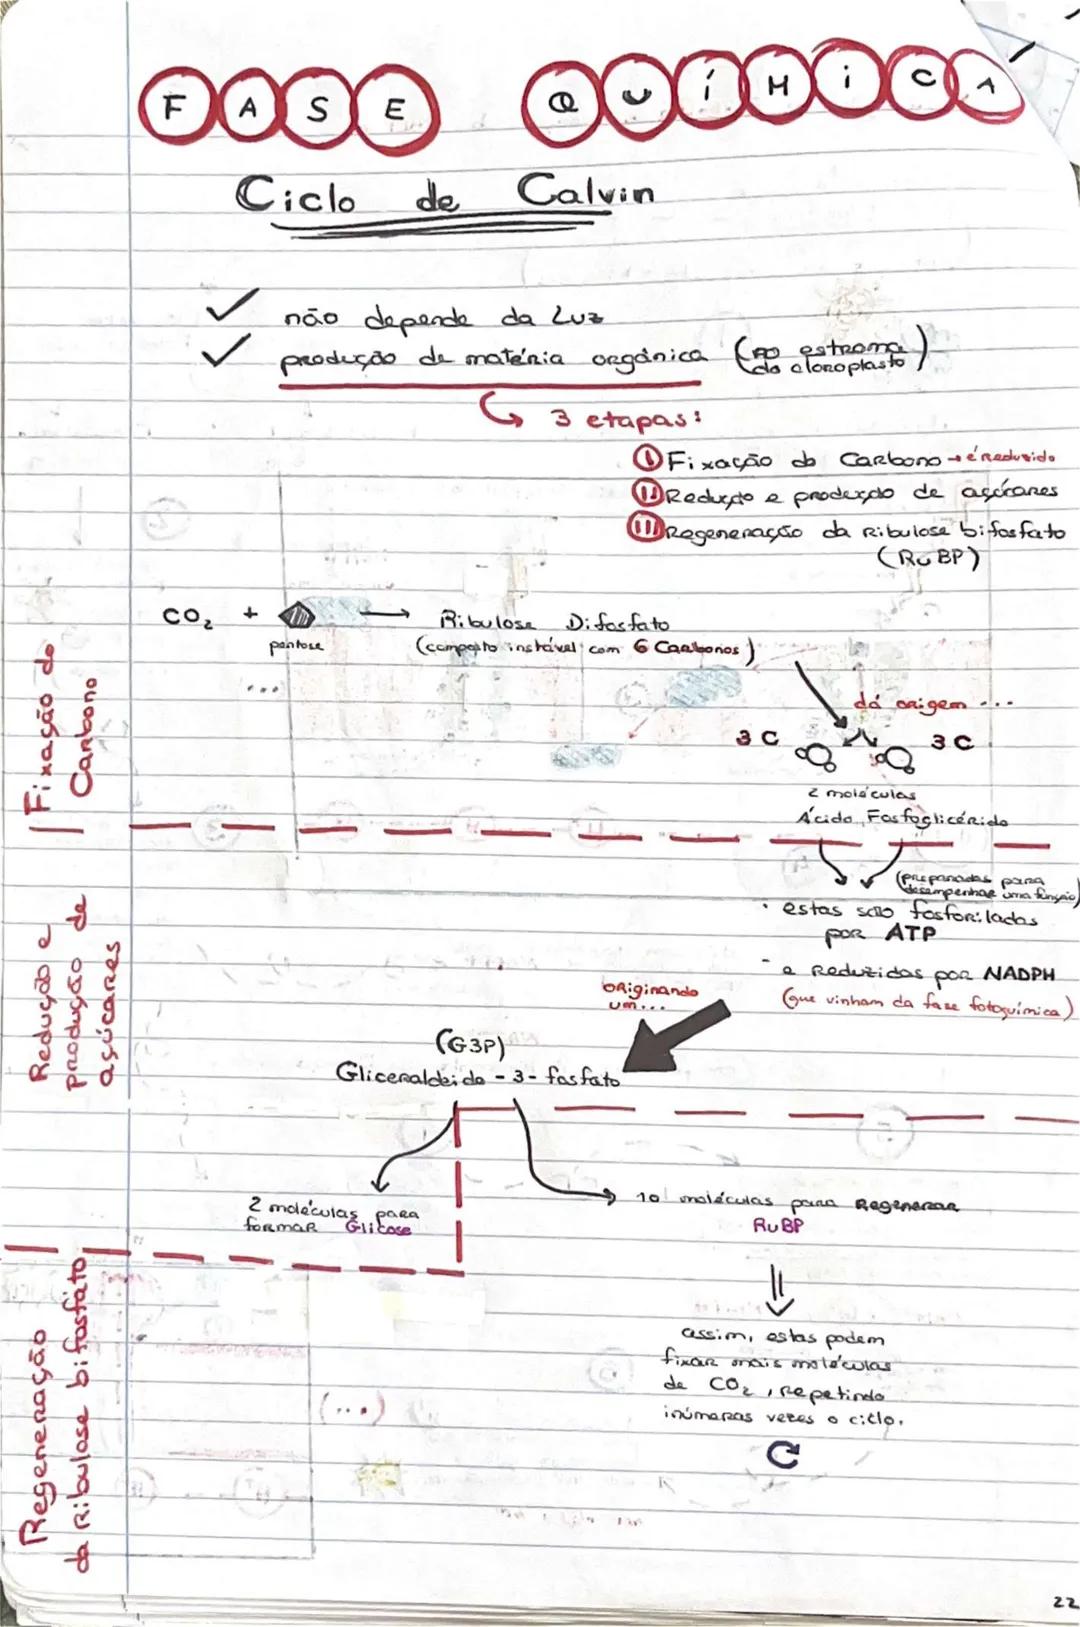 FASE QUÍMiCA
Ciclo de Calvin
não depende da Luz
produção de matéria orgânica (no estroma do cloroplasto)
3 etapas:
I Fixação do Carbono → é Reduzido
II Redução e produção de açúcares
III Regeneração da Ribulose bifosfato
(RuBP)
CO₂ + → Ribulose Difosfato
pentose (composto instável com 6 Carbonos)
...
dá origem ...
3C 3C
2 moléculas
Ácido Fosfoglicérido
Fixação do
Carbono
(preparadas para
desempenhar uma função)
• estas são fosforiladas
por ATP
- e Reduzidas por NADPH
(que vinham da fase fotoquímica)
originando
um...
(G3P)
Gliceraldeído - 3 - fosfato
Redução e
produção de
açúcares
2 moléculas para
formar Glicose
10 moléculas para Regenerar
RuBP
assim, estas podem
fixar mais moléculas
de CO₂, repetindo
inúmeras vezes o ciclo.
(...)
Regeneração
da Ribulose bifosfato
22